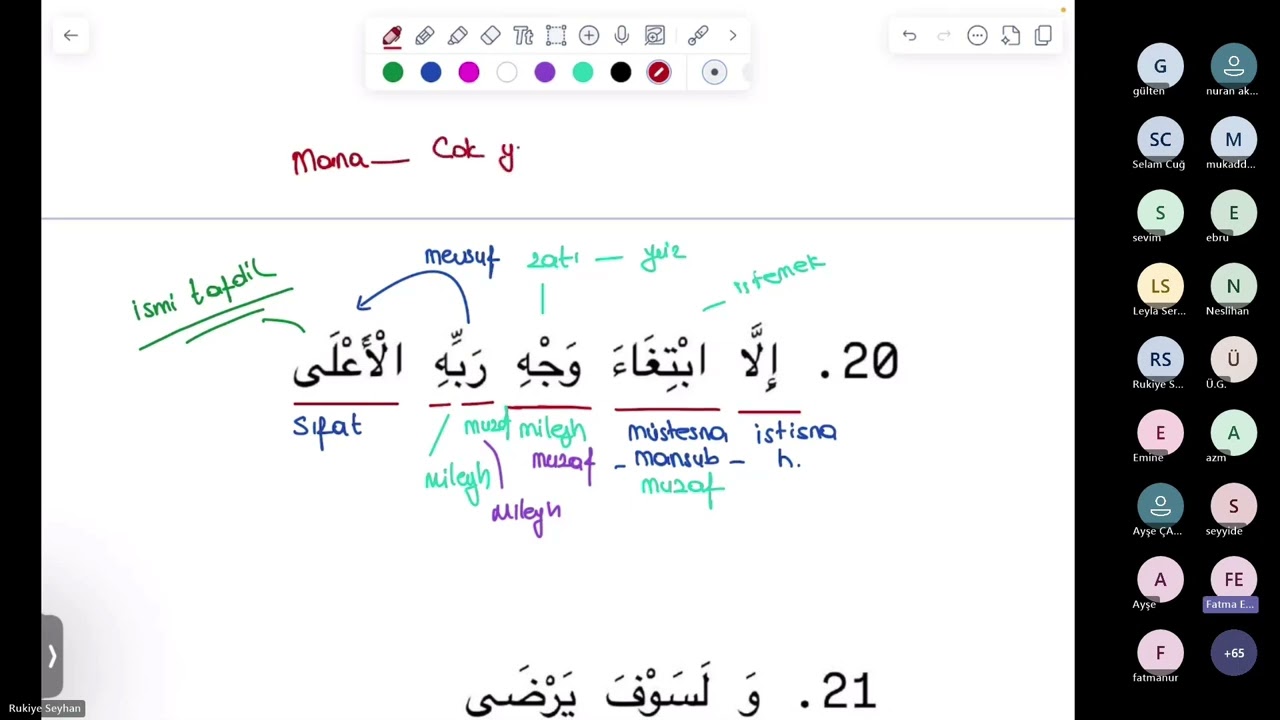 Tt
Mana — Cok y
mevsuf zatı — yüz istemek
ismi tafdil
20. إِلَّا ابْتِغَاءَ وَجْهِ رَبِّهِ الْأَعْلَى
Sıfat muzaf mileyh müstesna istisna
mileyh muzaf - mansub - h.
mileyh muzaf
21. وَ لَسَوْفَ يَرْضَى
G
gülten
nuran ak...
SC
Selam Cuğ
M
mukadd...
S
sevim
E
ebru
LS
Leyla Ser...
N
Neslihan
RS
Rukiye S...
Ü
Ü.G.
E
Emine
A
azm
Ayşe ÇA...
S
seyyide
A
Ayşe
FE
Fatma E...
F
fatmanur
+65
Rukiye Seyhan